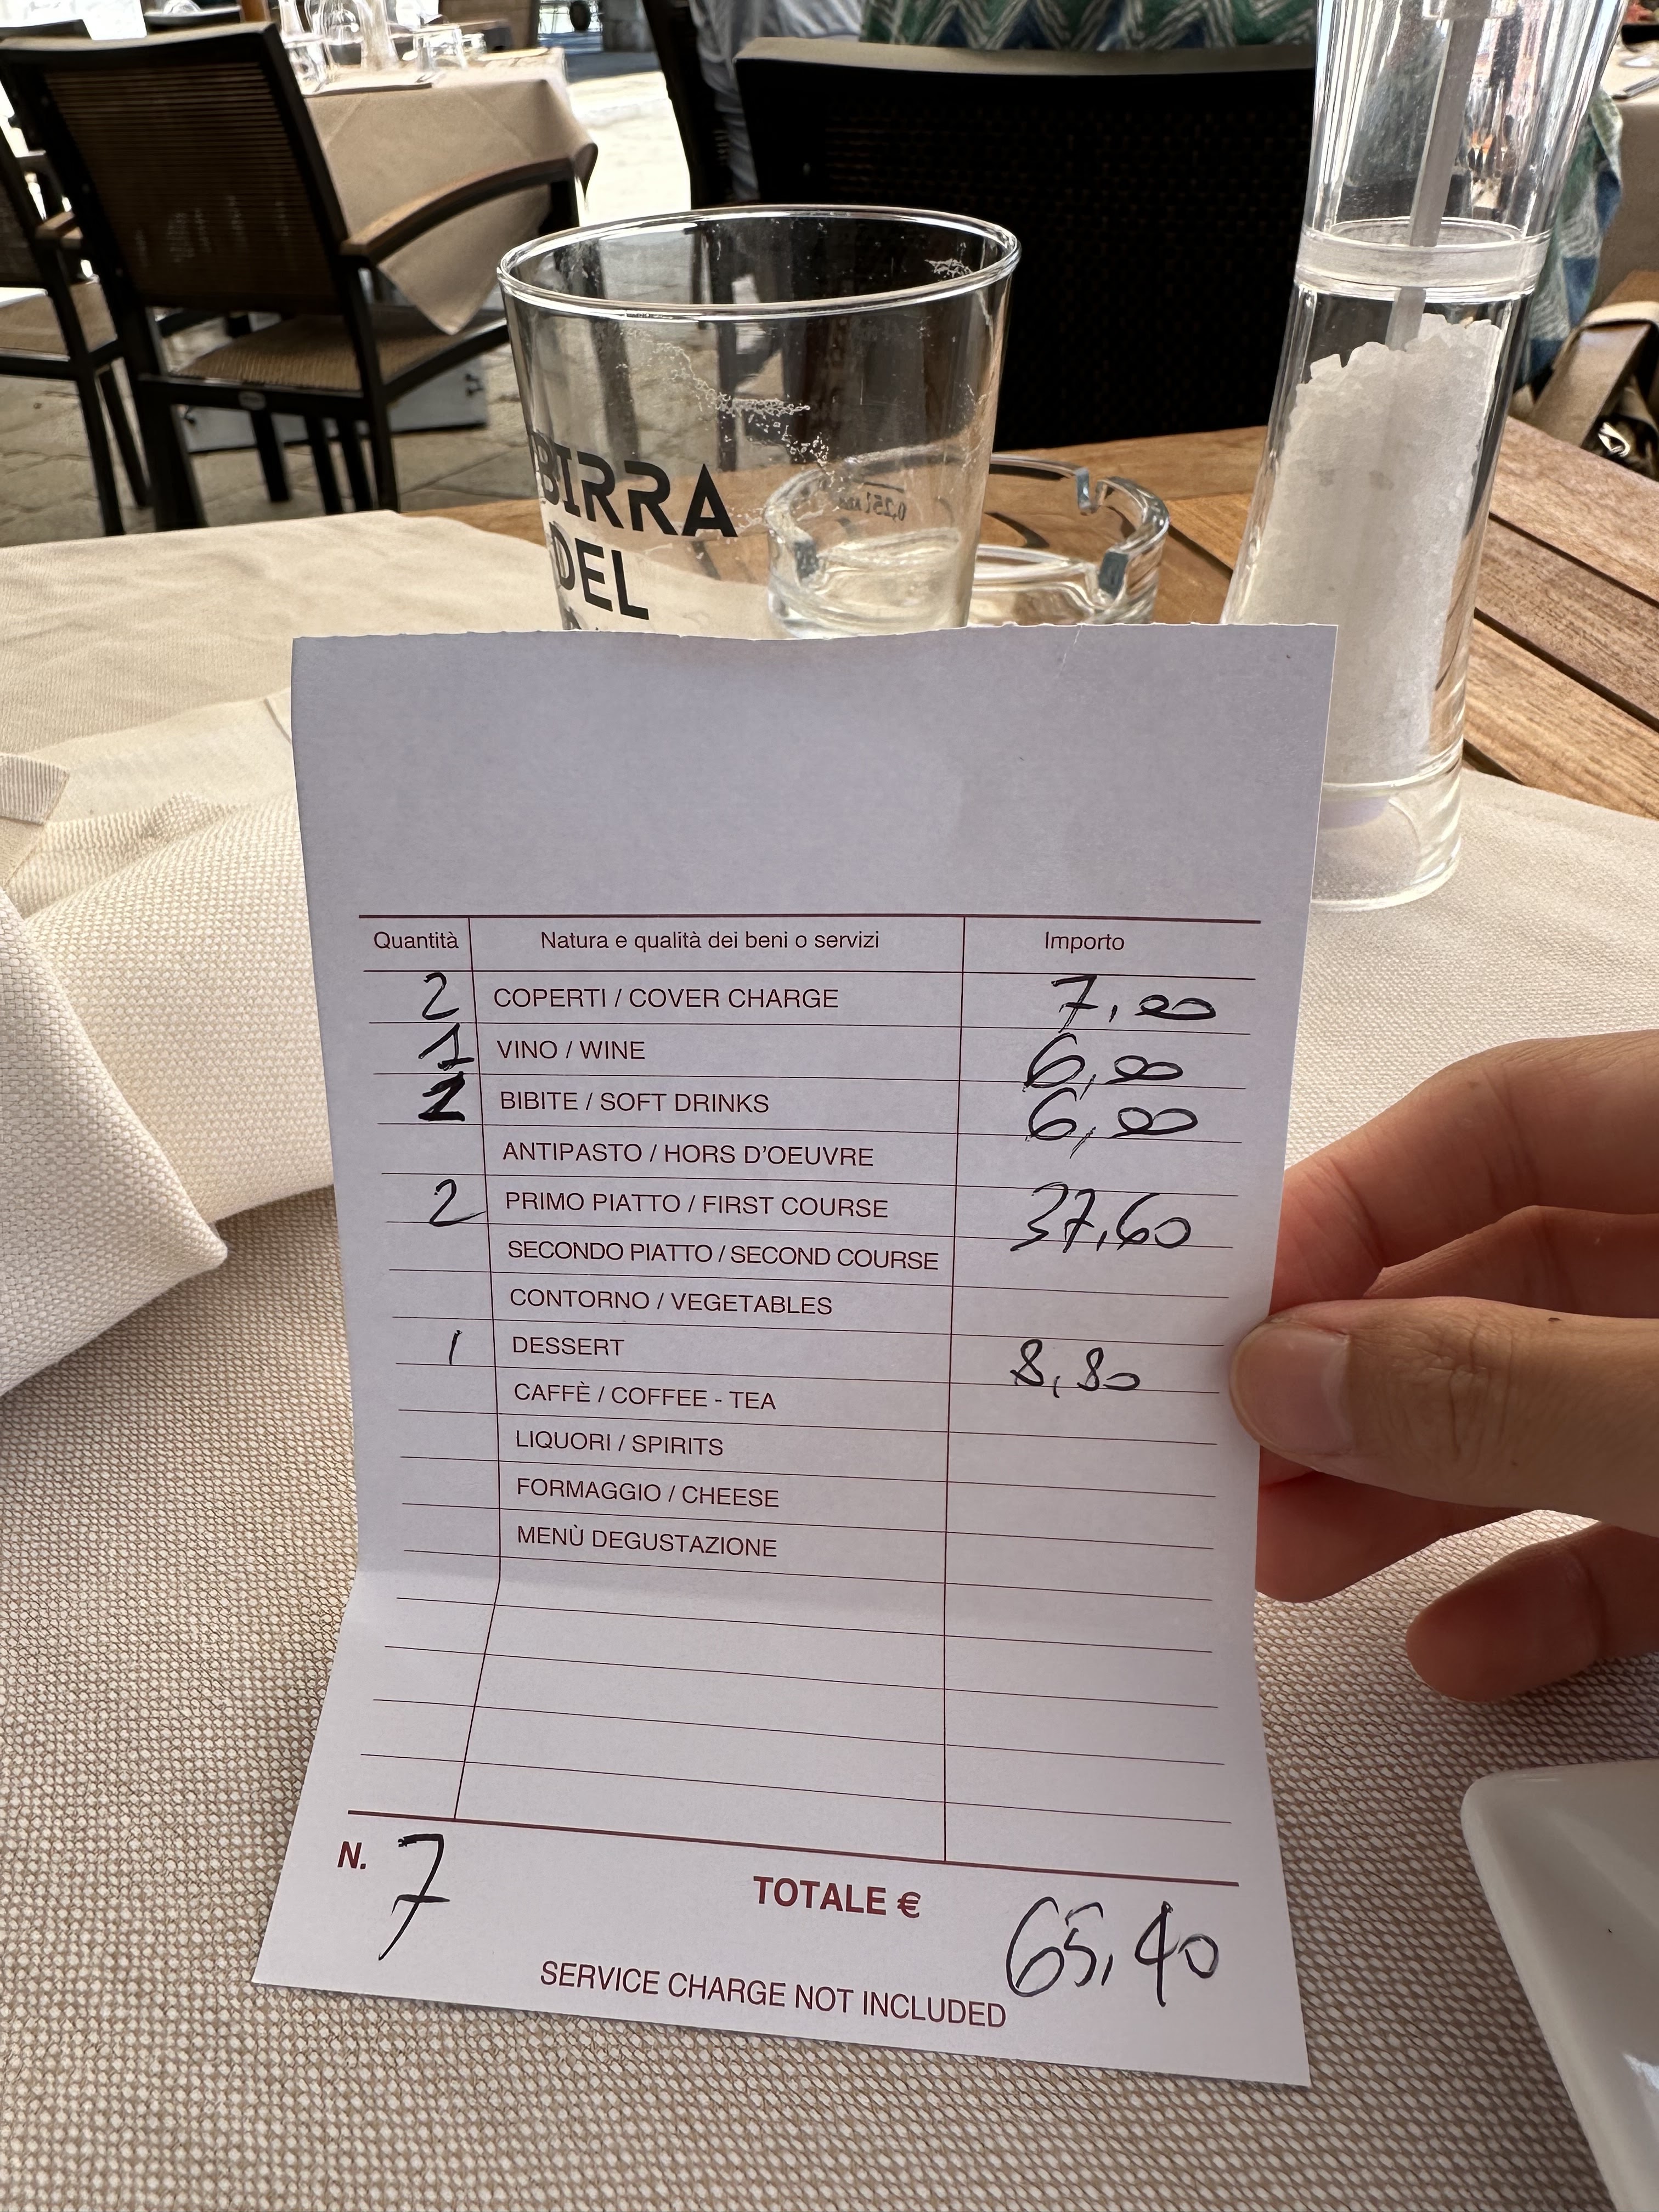 BIRRA
DEL
0,25l
Quantità Natura e qualità dei beni o servizi Importo
2 COPERTI / COVER CHARGE 7,00
1 VINO / WINE 6,00
1 BIBITE / SOFT DRINKS 6,00
ANTIPASTO / HORS D'OEUVRE
2 PRIMO PIATTO / FIRST COURSE 37,60
SECONDO PIATTO / SECOND COURSE
CONTORNO / VEGETABLES
1 DESSERT 8,80
CAFFÈ / COFFEE - TEA
LIQUORI / SPIRITS
FORMAGGIO / CHEESE
MENÙ DEGUSTAZIONE
N. 7 TOTALE € 65,40
SERVICE CHARGE NOT INCLUDED